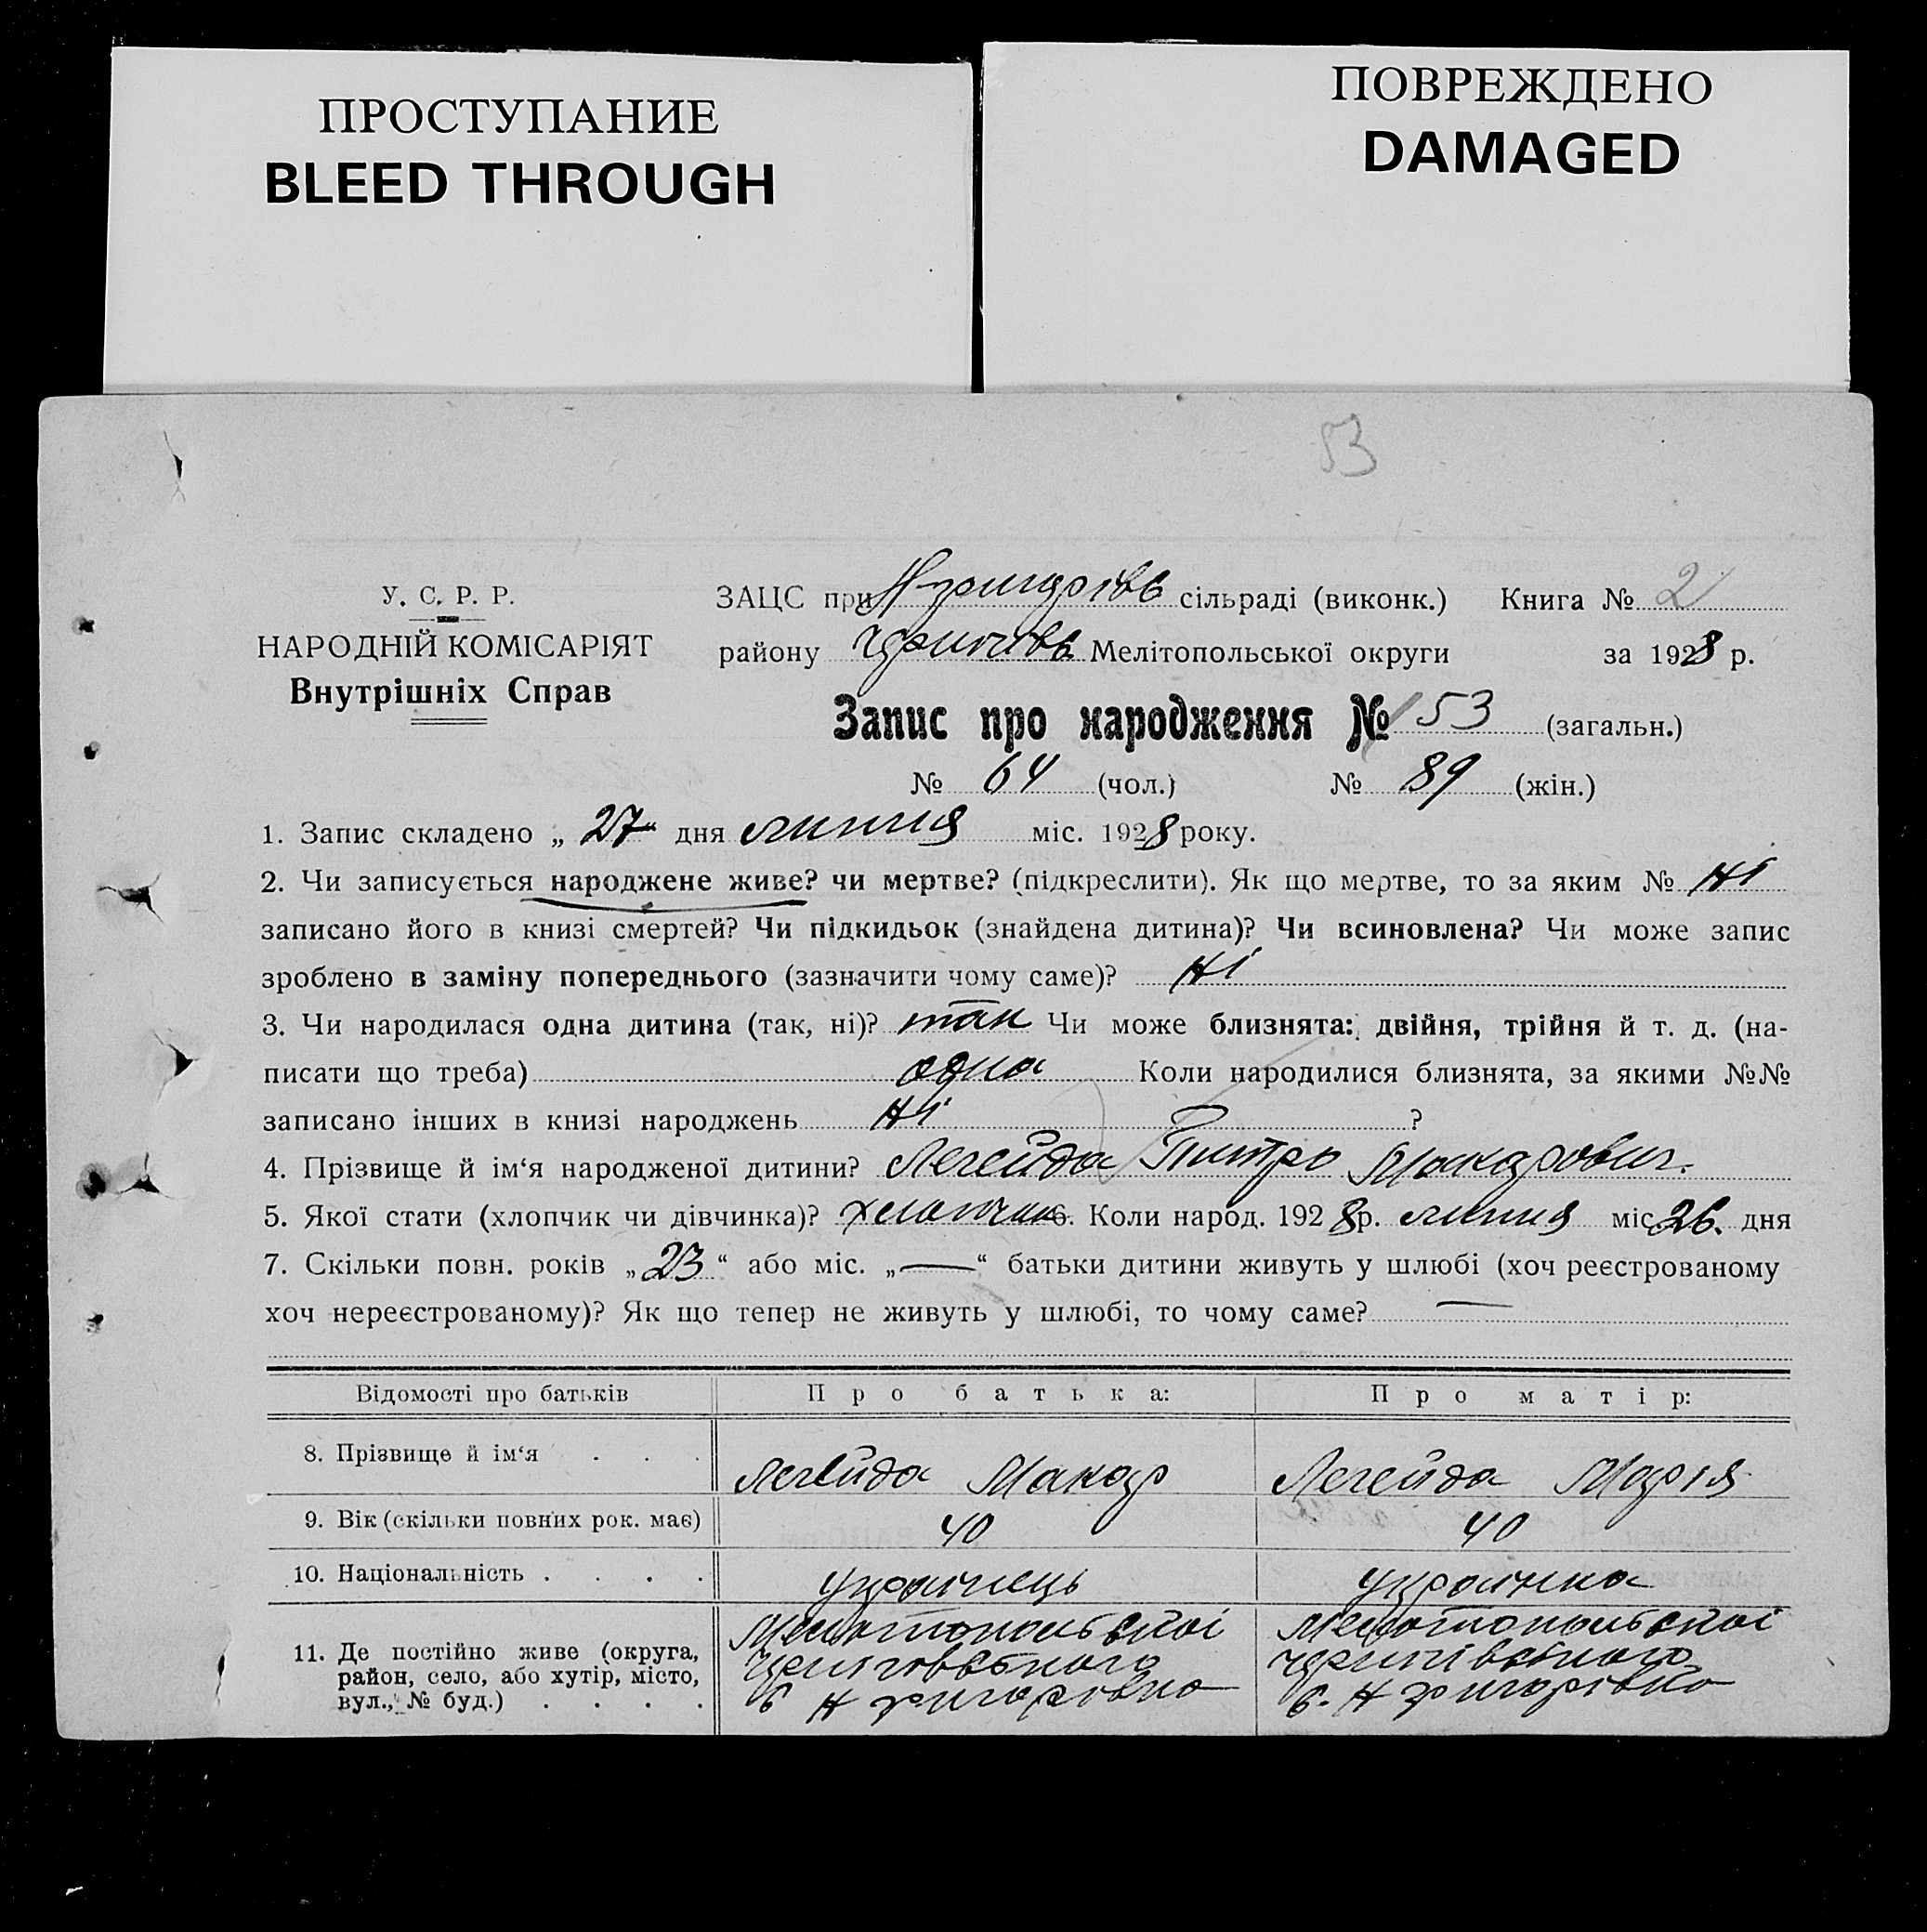 ПРОСТУПАНИЕ
BLEED THROUGH
ПОВРЕЖДЕНО
DAMAGED
53
У. С. Р. Р.
НАРОДНІЙ КОМІСАРІЯТ
Внутрішніх Справ
ЗАЦС при сільраді (виконк.) Книга № 2
району Мелітопольської округи за 1928 р.
Запис про народження № 153 (загальн.)
№ 64 (чол.) № 89 (жін.)
1. Запис складено „ 27 “ дня липня міс. 1928 року.
2. Чи записується народжене живе? чи мертве? (підкреслити). Як що мертве, то за яким № ні
записано його в книзі смертей? Чи підкидьок (знайдена дитина)? Чи всиновлена? Чи може запис
зроблено в заміну попереднього (зазначити чому саме)? ні
3. Чи народилася одна дитина (так, ні)? так Чи може близнята: двійня, трійня й т. д. (на-
писати що треба) одна Коли народилися близнята, за якими №№
записано інших в книзі народжень ні ?
4. Прізвище й ім‘я народженої дитини? Легейда Макарович.
5. Якої стати (хлопчик чи дівчинка)? хлопчик 6. Коли народ. 1928 р. липня міс. 26. дня
7. Скільки повн. років „ 23 “ або міс. „ — “ батьки дитини живуть у шлюбі (хоч реєстрованому
хоч нереєстрованому)? Як що тепер не живуть у шлюбі, то чому саме? —
Відомості про батьків Про батька: Про матір:
8. Прізвище й ім‘я . . . Легейда Макар Легейда Марія
9. Вік (скільки повних рок. має) 40 40
10. Національність . . . . українець українка
11. Де постійно живе (округа, Мелітопольської Мелітопольської
район, село, або хутір, місто,
вул., № буд.) . . . . с. Н Григорівка